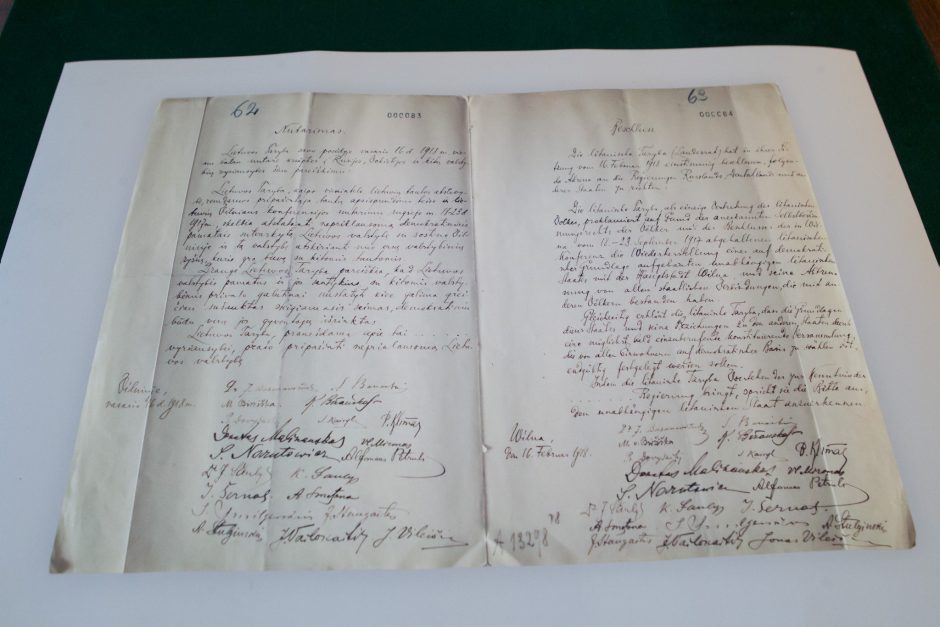 62
000083
Nutarimas.
Lietuvos Taryba savo posėdyje vasario 16 d. 1918 m. vie-
nu balsu nutarė kreiptis į Rusijos, Vokietijos ir kitų valsty-
bių vyriausybes šiuo pareiškimu:
Lietuvos Taryba, kaipo vienintelė lietuvių tautos atstovy-
bė, remdamos pripažintąja tautų apsisprendimo teise ir lie-
tuvių Vilniaus konferencijos nutarimu rugsėjo m. 18-23 d.
1917 m. skelbia atstatanti nepriklausomą, demokratiniais
pamatais sutvarkytą Lietuvos valstybę su sostine Vil-
niuje ir tą valstybę atskirianti nuo visų valstybinių
ryšių, kurie yra buvę su kitomis tautomis.
Drauge Lietuvos Taryba pareiškia, kad Lietuvos
valstybės pamatus ir jos santykius su kitomis valsty-
bėmis privalo galutinai nustatyti kiek galima grei-
čiau sušauktas steigiamasis seimas, demokratiniu
būdu visų jos gyventojų išrinktas.
Lietuvos Taryba pranešdama apie tai . . . . . .
vyriausybei, prašo pripažinti nepriklausomą Lietu-
vos valstybę.
Vilniuje,
vasario 16 d. 1918 m.
Dr J. Basanavičius
S. Banaitis
M. Biržiška
K. Bizauskas
P. Dovydaitis
S. Kairys
P. Klimas
Donatas Malinauskas
Wł. Mironas
S. Narutowicz
Alfonsas Petrulis
Dr J. Šaulys
K. Šaulys
J. Šernas
A. Smetona
J. Smilgevičius
J. Staugaitis
A. Stulginskis
J. Vailokaitis
J. Vileišis
63
000084
Beschluss
Die litauische Taryba (Landesrat) hat in ihrer Sit-
zung vom 16. Februar 1918 einstimmig beschlossen, folgen-
de Adresse an die Regierungen Russlands, Deutschlands und an-
derer Staaten zu richten:
Die litauische Taryba, als einzige Vertretung des litauischen
Volkes, proklamiert auf Grund des anerkannten Selbstbestim-
mungsrechts der Völker und des Beschlusses der in Wil-
na vom 18.-23. September 1917 abgehaltenen litauischen
Konferenz die Wiederherstellung eines auf demokrati-
scher Grundlage aufgebauten unabhängigen litauischen
Staates mit der Hauptstadt Wilna und seine Abtren-
nung von allen staatlichen Verbindungen, die mit an-
deren Völkern bestanden haben.
Gleichzeitig erklärt die litauische Taryba, dass die Grundlagen
dieses Staates und seine Beziehungen zu den anderen Staaten durch
eine möglichst bald einzuberufende konstituierende Versammlung,
die von allen Einwohnern auf demokratischer Basis zu wählen ist,
endgültig festgelegt werden sollen.
Indem die litauische Taryba Vorstehendes zur Kenntnis der
. . . . . . Regierung bringt, spricht sie die Bitte aus,
den unabhängigen litauischen Staat anzuerkennen.
Wilna,
den 16. Februar 1918.
Dr J. Basanavičius
S. Banaitis
M. Biržiška
K. Bizauskas
P. Dovydaitis
S. Kairys
P. Klimas
Donatas Malinauskas
Wł. Mironas
S. Narutowicz
Alfonsas Petrulis
Dr J. Šaulys
K. Šaulys
J. Šernas
A. Smetona
J. Smilgevičius
A. Stulginskis
J. Staugaitis
J. Vailokaitis
Jonas Vileišis
A 13298